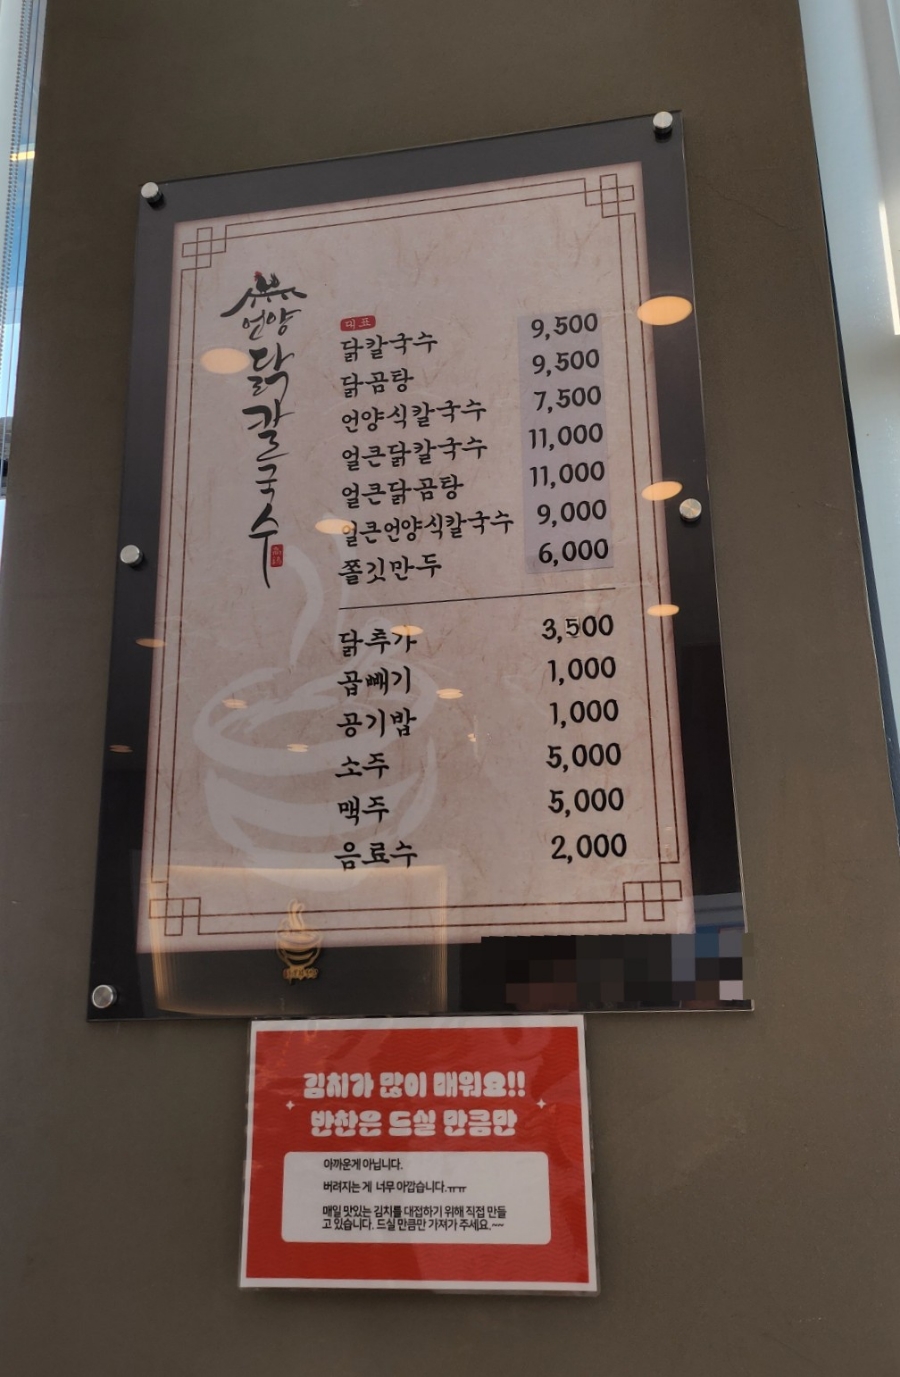 언양
닭칼국수
대표
닭칼국수 9,500
닭곰탕 9,500
언양식칼국수 7,500
얼큰닭칼국수 11,000
얼큰닭곰탕 11,000
얼큰언양식칼국수 9,000
쫄깃만두 6,000
닭추가 3,500
곱빼기 1,000
공기밥 1,000
소주 5,000
맥주 5,000
음료수 2,000
김치가 많이 매워요!!
반찬은 드실 만큼만
아까운게 아닙니다.
버려지는 게 너무 아깝습니다.ㅠㅠ
매일 맛있는 김치를 대접하기 위해 직접 만들
고 있습니다. 드실 만큼만 가져가 주세요.~~